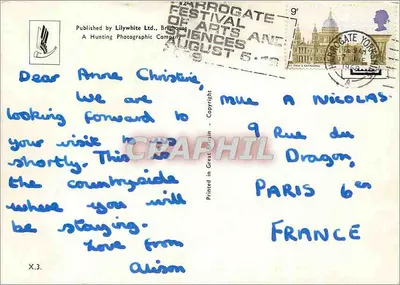 Published by Lilywhite Ltd.,
A Hunting Photographic Company
HARROGATE
FESTIVAL
OF ARTS AND
SCIENCES
AUGUST 5-
9P
HARROGATE YORKS
Dear Anne Christine,
We are
looking forward to
your visit to us
shortly. This is
the countryside
where you will
be staying.
Love from
Alison
Mlle A NICOLAS
9 Rue du
Dragon,
PARIS 6es
FRANCE
Printed in Great Britain - Copyright
CPAPHIL
X.3.